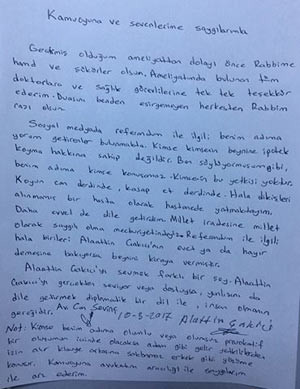 Kamuoyuna ve sevenlerime saygılarımla
Geçirmiş olduğum ameliyattan dolayı önce Rabbime
hamd ve şükürler olsun. Ameliyatımda bulunan tüm
doktorlara ve sağlık görevlilerine tek tek teşekkür
ederim. Duasını benden esirgemeyen herkesten Rabbim
razı olsun.
Sosyal medyada referandum ile ilgili benim adıma
yorum getirenler bulunmakta. Kimse kimsenin beynine ipotek
koyma hakkına sahip değildir. Ben söylüyormuşum gibi,
benim adıma kimse konuşamaz. Kimsenin bu yetkisi yoktur.
Koyun can derdinde, kasap et derdinde. Hala dikişleri
alınmamış bir hasta olarak hastanede yatmaktayım.
Daha evvel de dile getirdim. Millet iradesine millet
olarak saygılı olma mecburiyetindeyiz. Referandum ile ilgili
hala birileri Alaattin Çakıcı'nın evet ya da hayır
demesine bakıyorsa beynini kiraya vermiştir.
Alaattin Çakıcı'yı sevmek farklı bir şey. Alaattin
Çakıcı'yı gerçekten seviyor veya dostuysa, yanlışını da
dile getirmek diplomatik bir dil ile, insan olmanın
gereğidir. Av. Can Sevinç 10-3-2017 Alaattin Çakıcı
Not: Kimse benim adıma olumlu veya olumsuz provokatif
bir oluşumun içinde olacaksa adam gibi gelir
için atır kılığa arkasına saklanmaz erkek gibi
konuşur. Kamuoyuna avukatım aracılığı ile saygılarım
ile arz ederim.